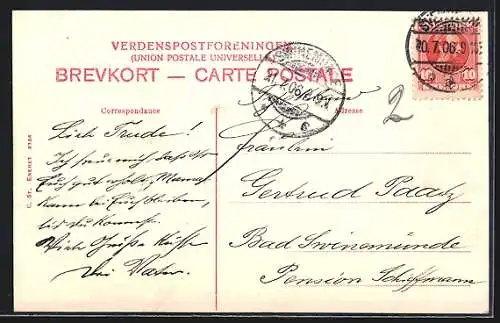 VERDENSPOSTFORENINGEN
(UNION POSTALE UNIVERSELLE)
BREVKORT — CARTE POSTALE
Correspondance
Adresse
Lieb Trude!
Ich freue mich daß ihr
Euch gut erholt, Mama
kann bei Euch bleiben,
bis du kommst.
Viele Grüße Küsse
Dein Vater.
Fräulein
Gertrud Paatz
Bad Swinemünde
Pension Schiffmann
2
20.7.06.9
10 10
SWINEMÜNDE
21.7.06
* * c